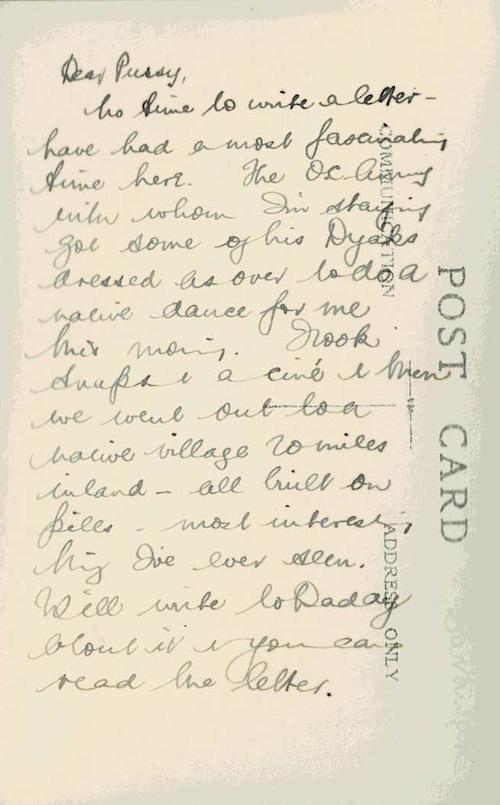 Dear Pussy,
No time to write a letter -
have had a most fascinating
time here. The O.C. Army
with whom I'm staying
got some of his Dyaks
dressed as over to do a
native dance for me
this morning. I took
snaps & a ciné & then
we went out to a
native village 20 miles
inland - all built on
piles - most interesting
thing I've ever seen.
Will write to Daddy
about it & you can
read the letter.
POST CARD
COMMUNICATION
ADDRESS ONLY